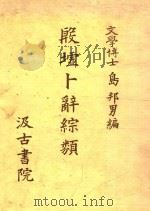 文學博士 島邦男編
殷墟卜辭綜類
汲古書院
www.toutiwai.com